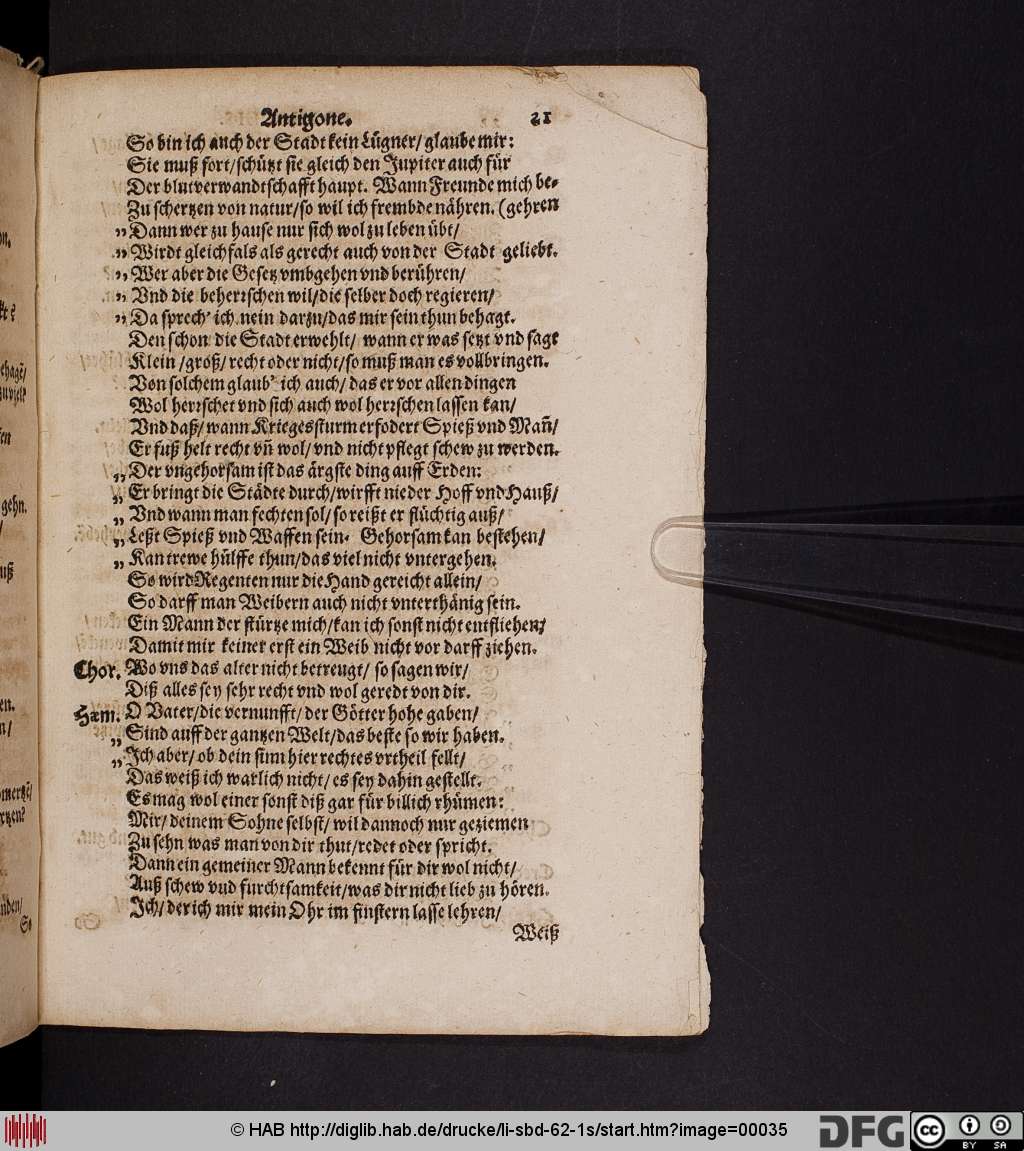 Antigone. 21
So bin ich auch der Stadt kein Lügner/ glaube mir:
Sie muß fort/ schützt sie gleich den Jupiter auch für
Der blutverwandtschafft haupt. Wann Freunde mich be-
Zu schertzen von natur/ so wil ich frembde nähren. (gehren
„ Dann wer zu hause nur sich wol zu leben übt/
„ Wirdt gleichfals als gerecht auch von der Stadt geliebt.
„ Wer aber die Gesetz vmbgehen vnd berühren/
„ Vnd die beherrschen wil/ die selber doch regieren/
„ Da sprech' ich nein darzu/ das mir sein thun behagt.
Den schon die Stadt erwehlt/ wann er was setzt vnd sagt
Klein/ groß/ recht oder nicht/ so muß man es vollbringen.
Von solchem glaub' ich auch/ das er vor allen dingen
Wol herrschet vnd sich auch wol herrschen lassen kan/
Vnd daß/ wann Kriegessturm erfodert Spieß vnd Mañ/
Er fuß helt recht vñ wol/ vnd nicht pflegt schew zu werden.
„ Der vngehorsam ist das ärgste ding auff Erden:
„ Er bringt die Städte durch/ wirfft nieder Hoff vnd Hauß/
„ Vnd wann man fechten sol/ so reißt er flüchtig auß/
„ Leßt Spieß vnd Waffen sein. Gehorsam kan bestehen/
„ Kan trewe hülffe thun/ das viel nicht vntergehen.
So wird Regenten nur die Hand gereicht allein/
So darff man Weibern auch nicht vnterthänig sein.
Ein Mann der stürtze mich/ kan ich sonst nicht entfliehen/
Damit mir keiner erst ein Weib nicht vor darff ziehen.
Chor. Wo vns das alter nicht betreugt/ so sagen wir/
Diß alles sey sehr recht vnd wol geredt von dir.
Hæm. O Vater/ die vernunfft/ der Götter hohe gaben/
„ Sind auff der gantzen Welt/ das beste so wir haben.
„ Ich aber/ ob dein sinn hier rechtes vrtheil fellt/
Das weiß ich warlich nicht/ es sey dahin gestellt.
Es mag wol einer sonst diß gar für billich rhümen:
Mir/ deinem Sohne selbst/ wil dannoch nur geziemen
Zu sehn was man von dir thut/ redet oder spricht.
Dann ein gemeiner Mann bekennt für dir wol nicht/
Auß schew vnd furchtsamkeit/ was dir nicht lieb zu hören.
Ich/ der ich mir mein Ohr im finstern lasse lehren/
Weiß
© HAB http://diglib.hab.de/drucke/li-sbd-62-1s/start.htm?image=00035
DFG
cc BY SA